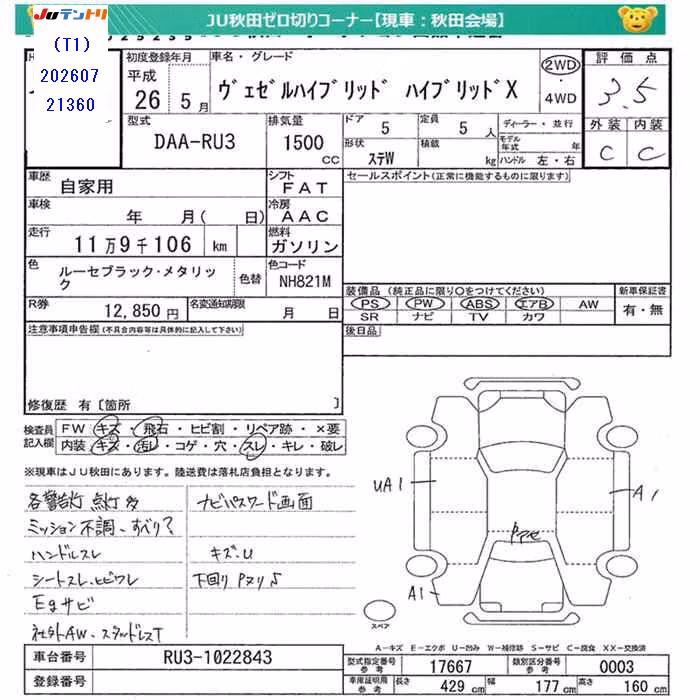 JUテントリ
JU秋田ゼロ切りコーナー【現車：秋田会場】
(T1)
202607
21360
初度登録年月
平成
26 5月
車名・グレード
ヴェゼルハイブリッド ハイブリッドX
2WD
・4WD
評価点
3.5
外装 内装
C C
型式
DAA-RU3
排気量
1500
CC
ドア 5
定員 5 人
ディーラー・並行
形状 ステW
積載 kg
モデル年式 年
ハンドル 左・右
車歴
自家用
シフト
FAT
セールスポイント(正常に機能するものに限ります)
車検
年 月( 日)
冷房
AAC
走行
11万9千106 km
燃料
ガソリン
色
ルーセブラック・メタリック
色替
色コード
NH821M
装備品 (純正品に限り○をつけてください)
新車保証書
PS PW ABS エアB AW
SR ナビ TV カワ
有・無
R券
12,850円
名変通知期限
月 日
後日品
注意事項申告欄(不具合内容等は具体的に記入して下さい)
修復歴 有[箇所 ]
検査員記入欄
FW キズ・飛石・ヒビ割・リペア跡・×要
内装 キズ・汚レ・コゲ・穴・スレ・キレ・破レ
※現車はJU秋田にあります。陸送費は落札店負担となります。
各警告灯 点灯多
ナビパスワード画面
ミッション不調、すべり?
ハンドルスレ
キズ・U
シートスレ・ヒビワレ
下回りPヌリ
Egサビ
社外AW・スタッドレスT
UA1
A1
Pアセ
A1
スペア
A－キズ E－エクボ U－凹み W－補修跡 S－サビ C－腐食 XX－交換済
車台番号
RU3-1022843
型式指定番号 参考
17667
類別区分番号 参考
0003
登録番号
車庫証明用 参考
長さ 429 cm
幅 177 cm
高さ 160 cm